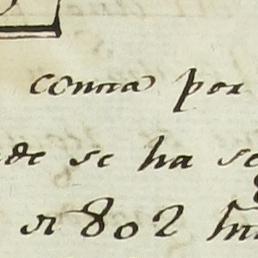 contra por
de se ha se
802